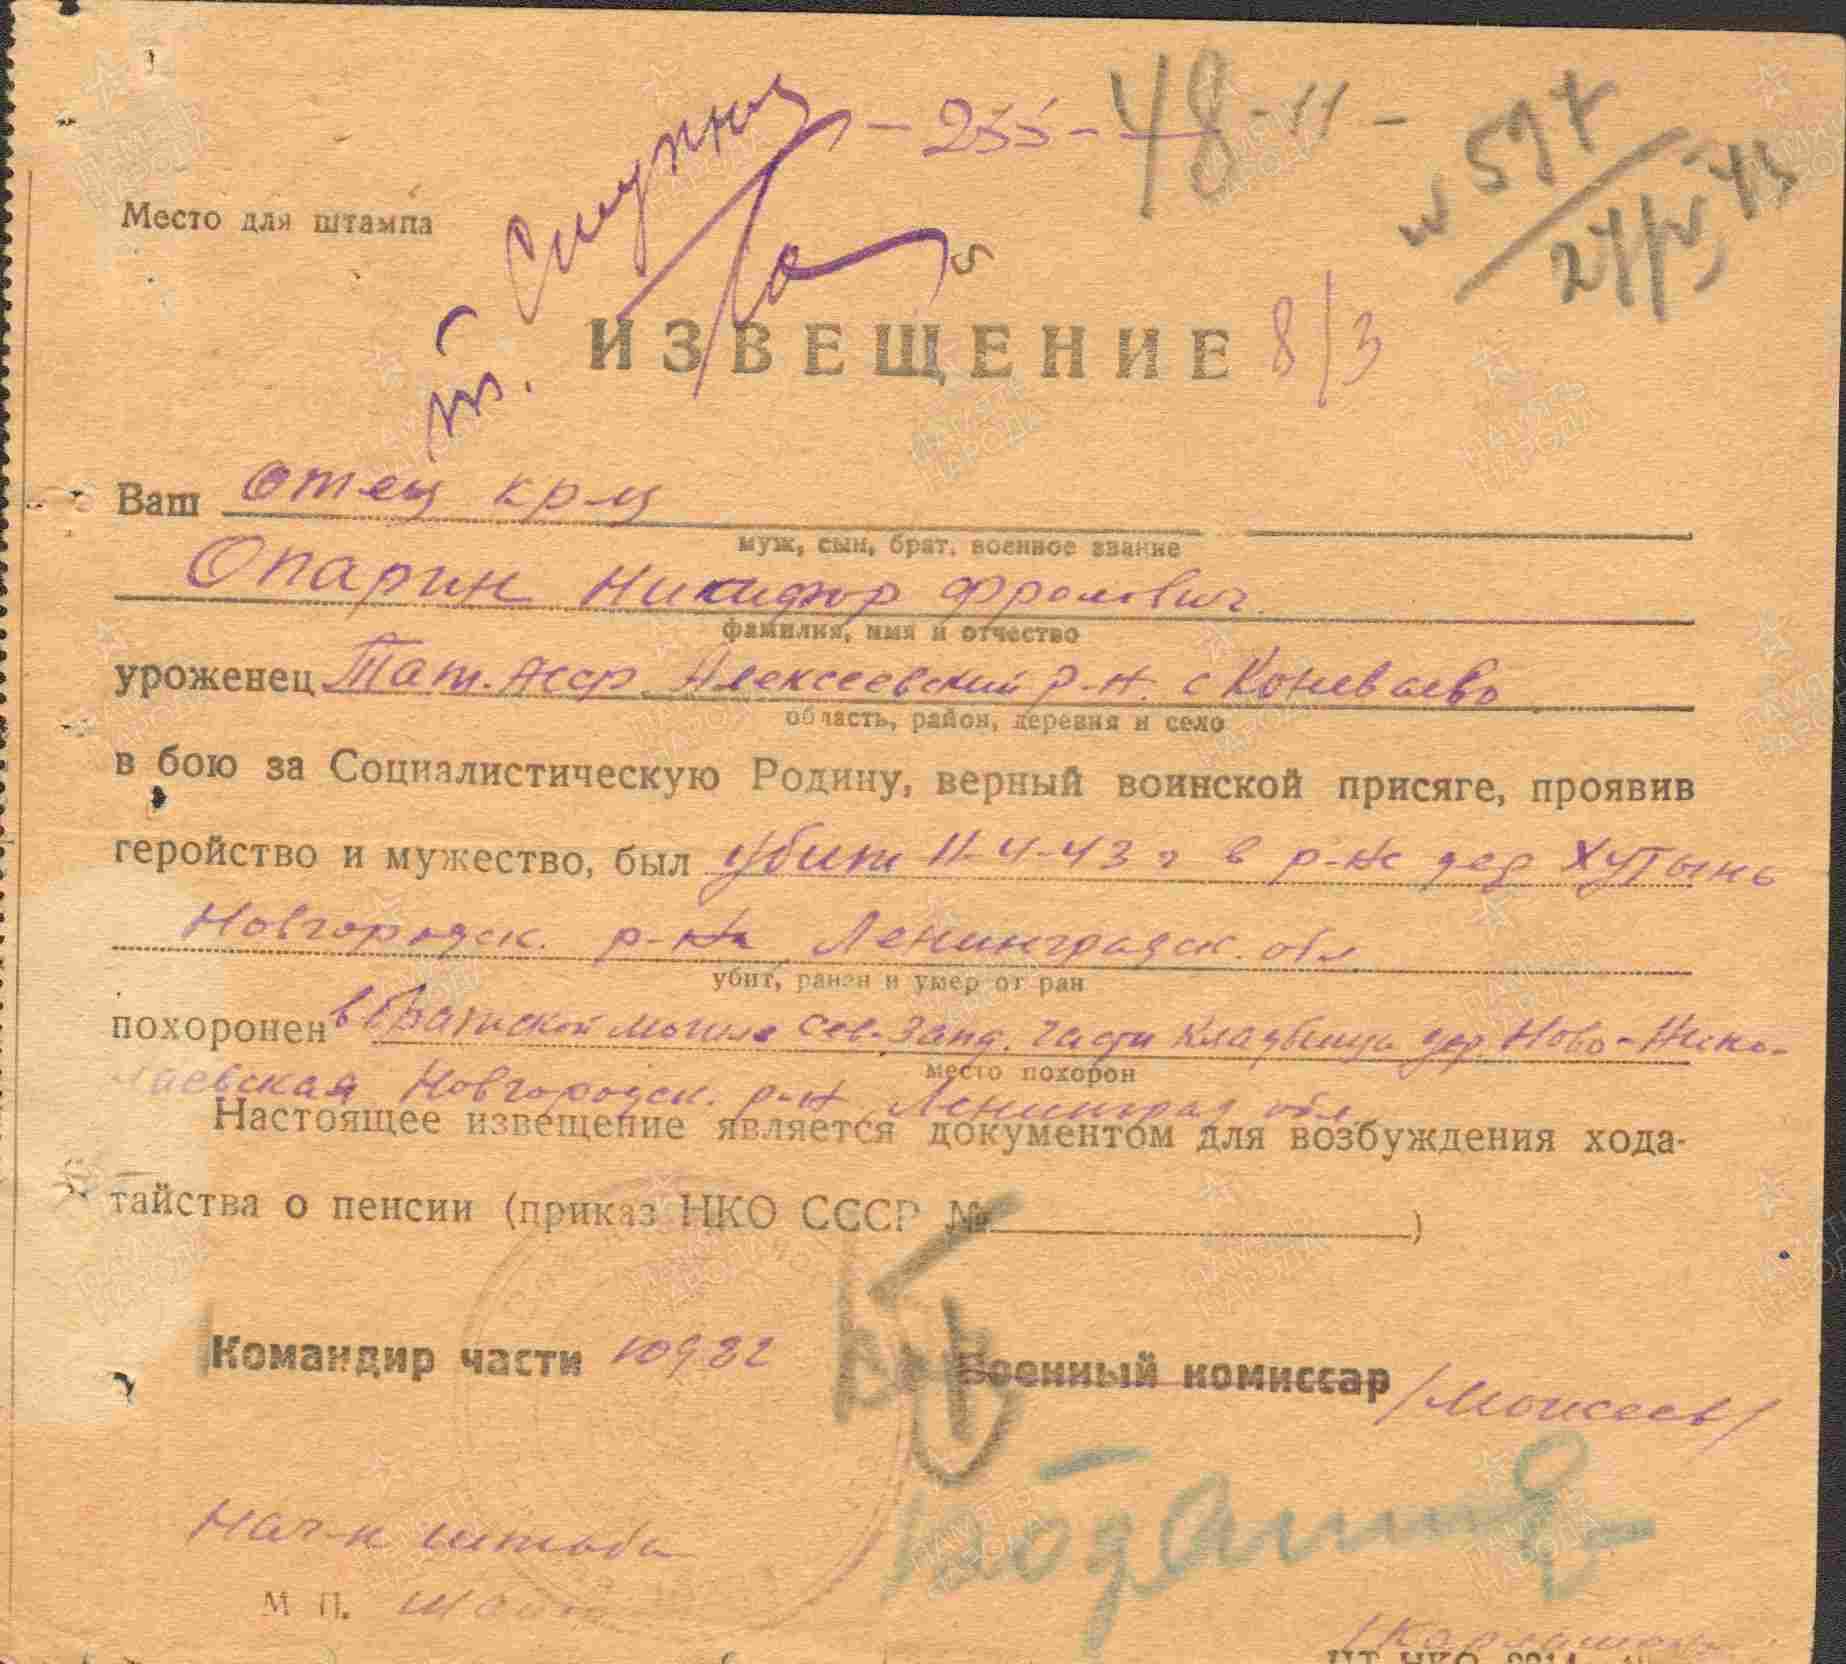 - 255 - 48 - 11 -
Место для штампа
т. Сиухину
ИЗВЕЩЕНИЕ 8/3
Ваш отец кр-ц
муж, сын, брат, военное звание
Опарин Никифор Фролович
фамилия, имя и отчество
уроженец Тат. АССР Алексеевский р-н. с Коневаево
область, район, деревня и село
в бою за Социалистическую Родину, верный воинской присяге, проявив
геройство и мужество, был убит 11-4-43 г в р-не дер Хутынь
Новгородск. р-на Ленинградск. обл
убит, ранен и умер от ран
похоронен в Братской могиле сев-Запд. части кладбища дер. Ново-Нико-
место похорон
лаевская Новгородск. р-н Ленинград обл.
Настоящее извещение является документом для возбуждения хода-
тайства о пенсии (приказ НКО СССР №)
Командир части 10982 Военный комиссар /Моисеев/
Нач-к штаба
М П.